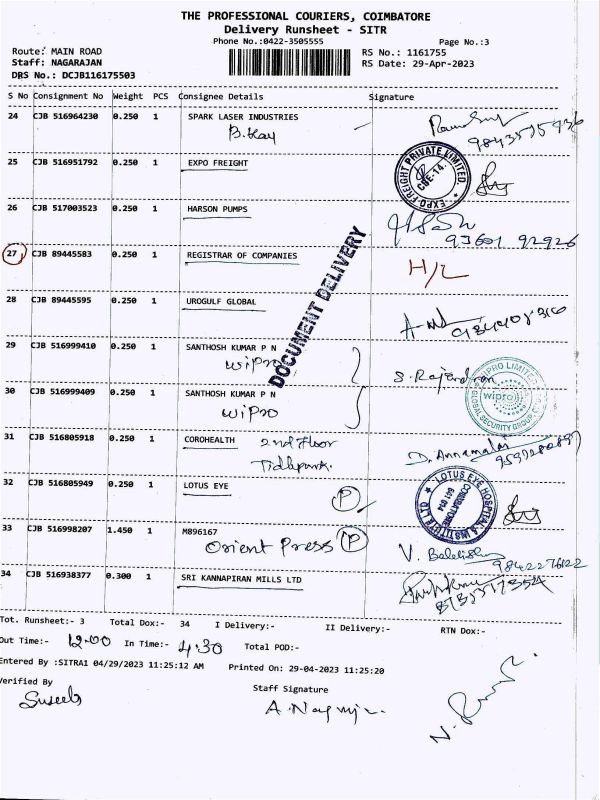 THE PROFESSIONAL COURIERS, COIMBATORE
Delivery Runsheet - SITR
Phone No.:0422-3505555 Page No.:3
Route: MAIN ROAD RS No.: 1161755
Staff: NAGARAJAN RS Date: 29-Apr-2023
DRS No.: DCJB116175503
S No Consignment No Weight PCS Consignee Details Signature
24 CJB 516964230 0.250 1 SPARK LASER INDUSTRIES
25 CJB 516951792 0.250 1 EXPO FREIGHT
EXPO FREIGHT PRIVATE LIMITED. CBE-14.
26 CJB 517003523 0.250 1 HARSON PUMPS
93601 92926
27 CJB 89445583 0.250 1 REGISTRAR OF COMPANIES H/L
DOCUMENT DELIVERY
28 CJB 89445595 0.250 1 UROGULF GLOBAL
29 CJB 516999410 0.250 1 SANTHOSH KUMAR P N
wipro S. Rajendran
30 CJB 516999409 0.250 1 SANTHOSH KUMAR P N
wipro
WIPRO LIMITED wipro GLOBAL SECURITY GROUP
31 CJB 516805918 0.250 1 COROHEALTH 2nd Floor
Tidlpark. D. Annamalai
32 CJB 516805949 0.250 1 LOTUS EYE P
LOTUS EYE HOSPITAL & INSTITUTE LTD COIMBATORE 641 014
33 CJB 516998207 1.450 1 M896167
Orient Press P V.
9842276122
34 CJB 516938377 0.300 1 SRI KANNAPIRAN MILLS LTD
Tot. Runsheet:- 3 Total Dox:- 34 I Delivery:- II Delivery:- RTN Dox:-
Out Time:- 12.00 In Time:- 4.30 Total POD:-
Entered By :SITRA1 04/29/2023 11:25:12 AM Printed On: 29-04-2023 11:25:20
Verified By Staff Signature